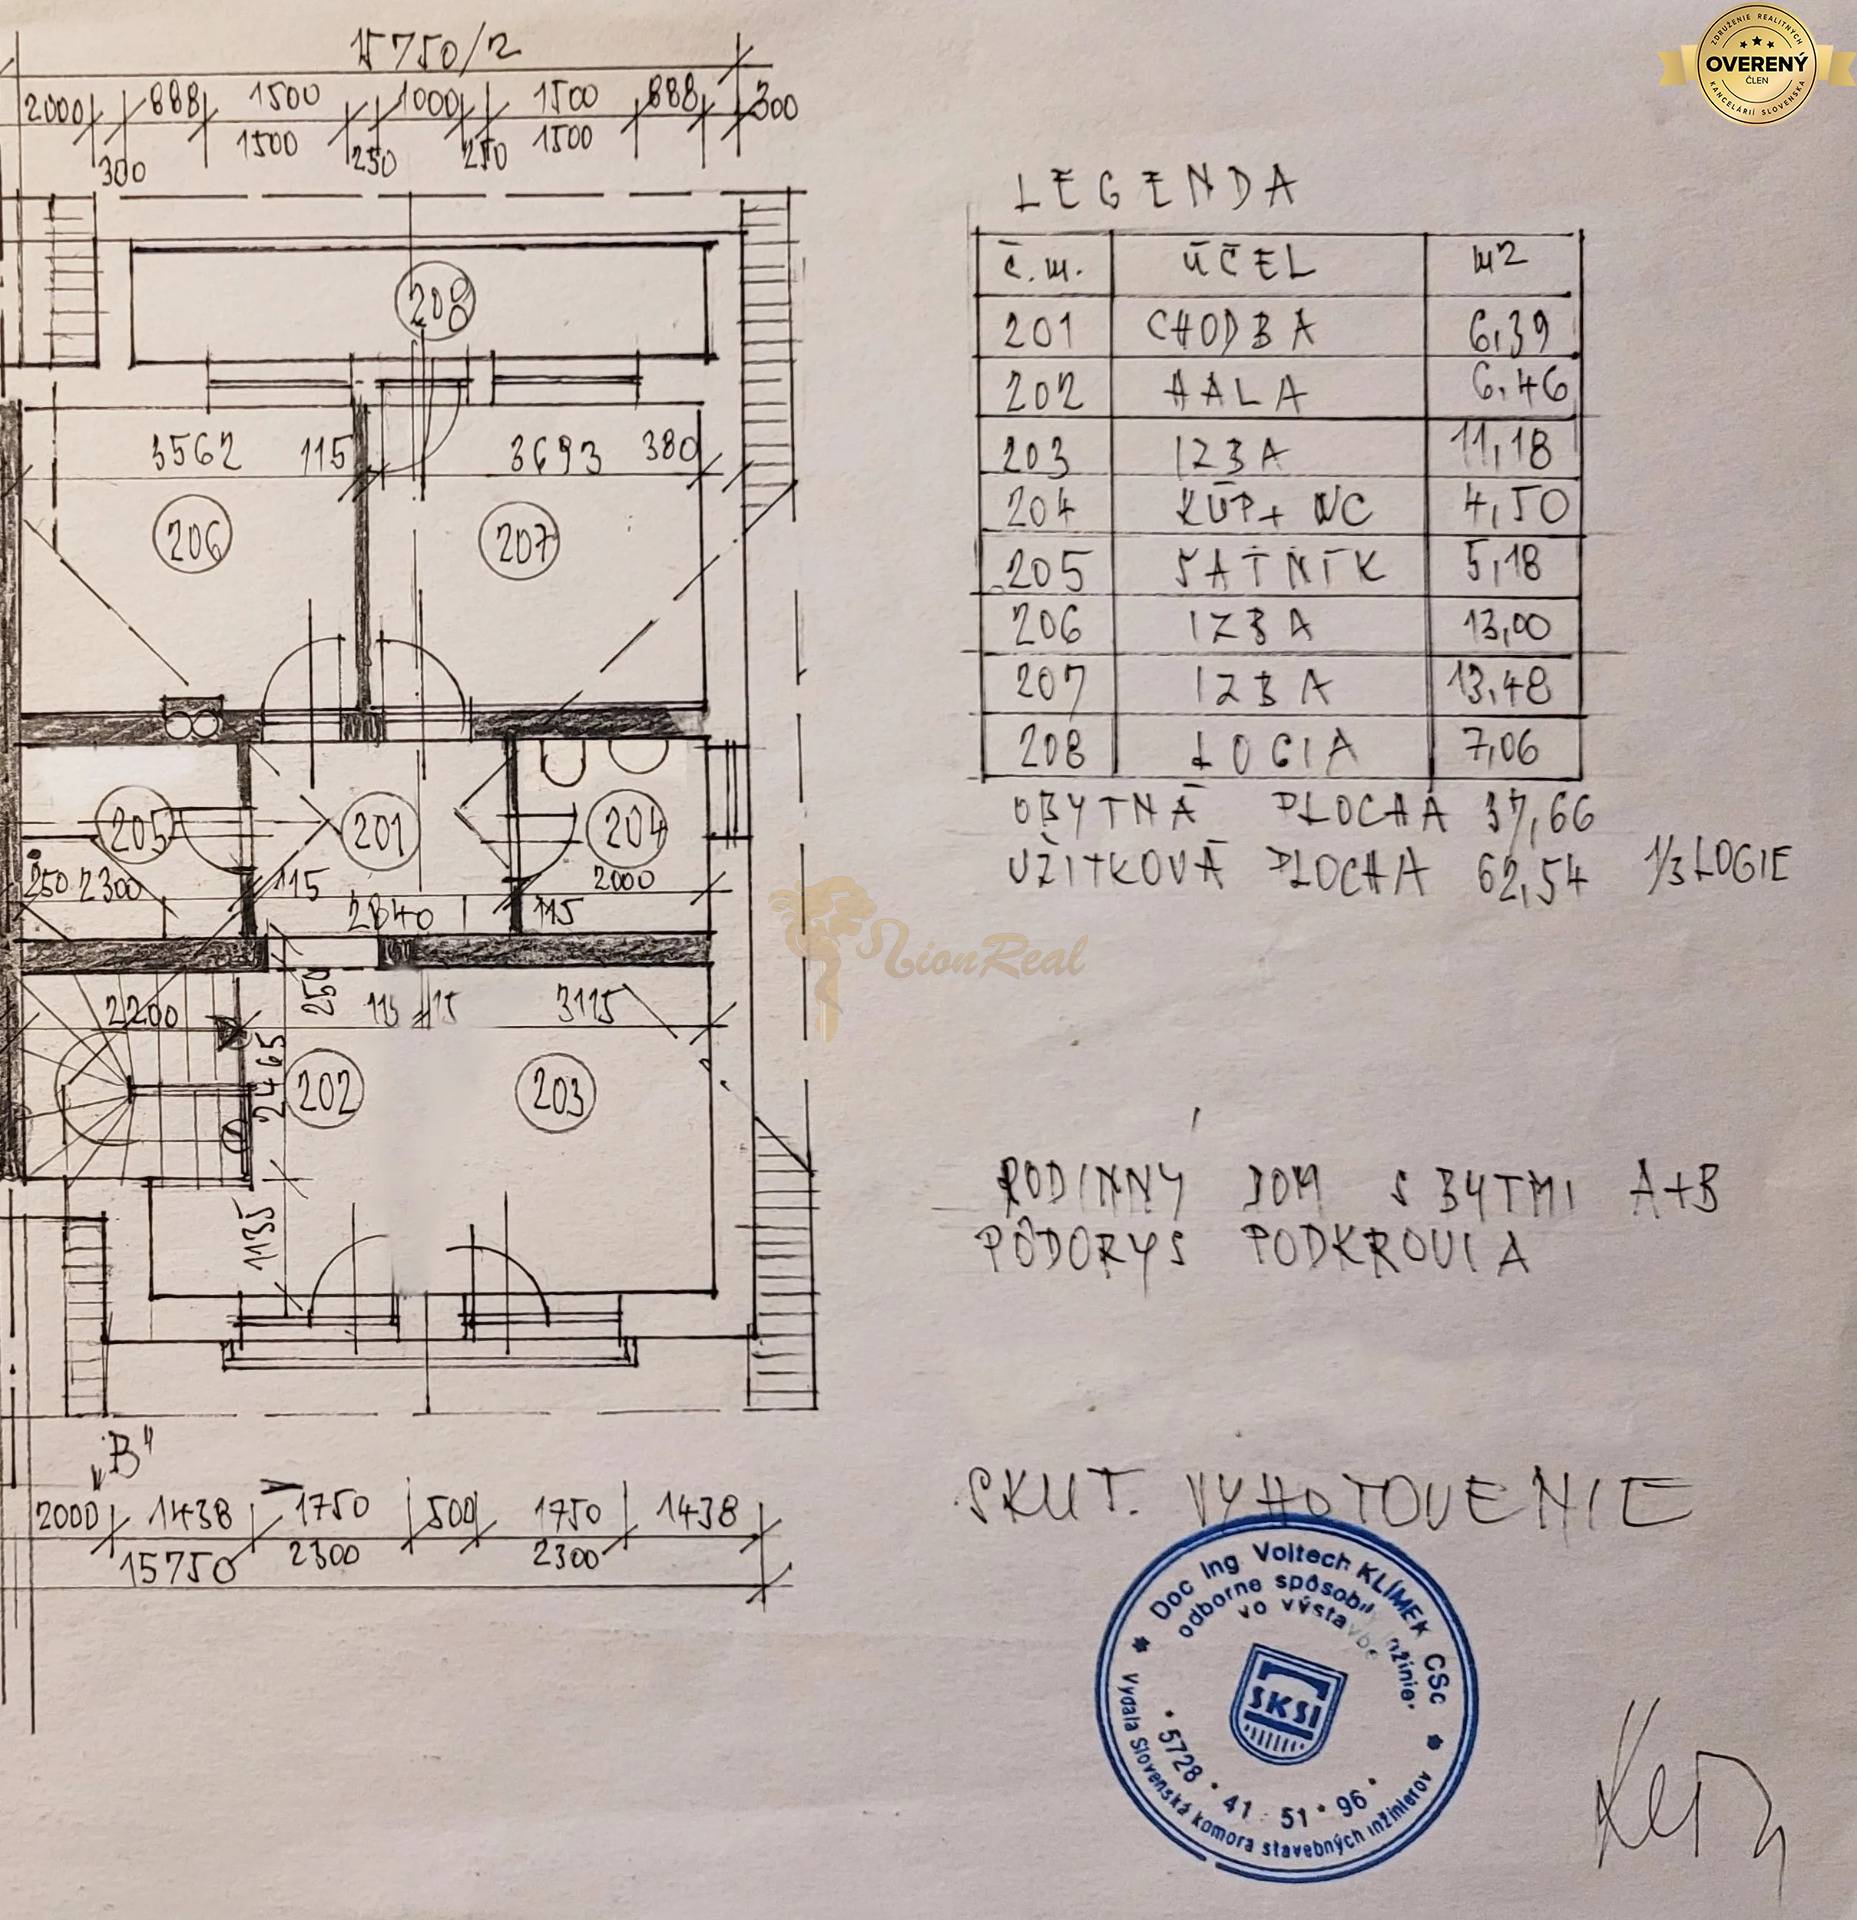 15750/2
2000 888 1500 1000 1500 888 300
300 1500 250 250 1500
208
3562 115 3693 380
206 207
205 201 204
250 2300 115 2840 115 2000
2200 250 115 115 3115
2465
202 203
1135
„B"
2000 1438 1750 500 1750 1438
15750 2300 2300
ZDRUŽENIE REALITNÝCH
OVERENÝ
ČLEN
KANCELÁRIÍ SLOVENSKA
LEGENDA
č.m. ÚČEL m2
201 CHODBA 6,39
202 HALA 6,46
203 IZBA 11,18
204 KÚP+ WC 4,50
205 ŠATNÍK 5,18
206 IZBA 13,00
207 IZBA 13,48
208 LOGIA 7,06
OBYTNÁ PLOCHA 37,66
UŽITKOVÁ PLOCHA 62,54 1/3 LOGIE
LionReal
RODINNÝ DOM S BYTMI A+B
PÔDORYS PODKROVIA
SKUT. VYHOTOVENIE
Doc Ing Voltech KLÍMEK CSc
odborne spôsobil inžinier
vo výstavbe
SKSI
5728 * 41 * 51 * 96
Vydala Slovenská komora stavebných inžinierov